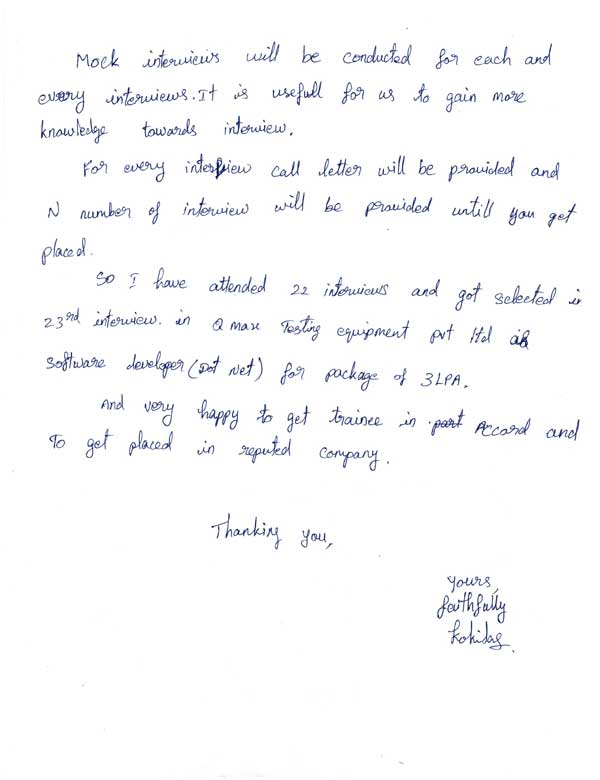 Mock interviews will be conducted for each and
every interviews. It is usefull for us to gain more
knowledge towards interview.
For every interview call letter will be provided and
N number of interview will be provided untill you get
placed.
So I have attended 22 interviews and got selected in
23rd interview. in Qmax Testing equipment pvt ltd as
Software developer (Dot Net) for package of 3LPA.
And very happy to get trainee in Accord and
To get placed in reputed company.
Thanking you,
Yours,
faithfully